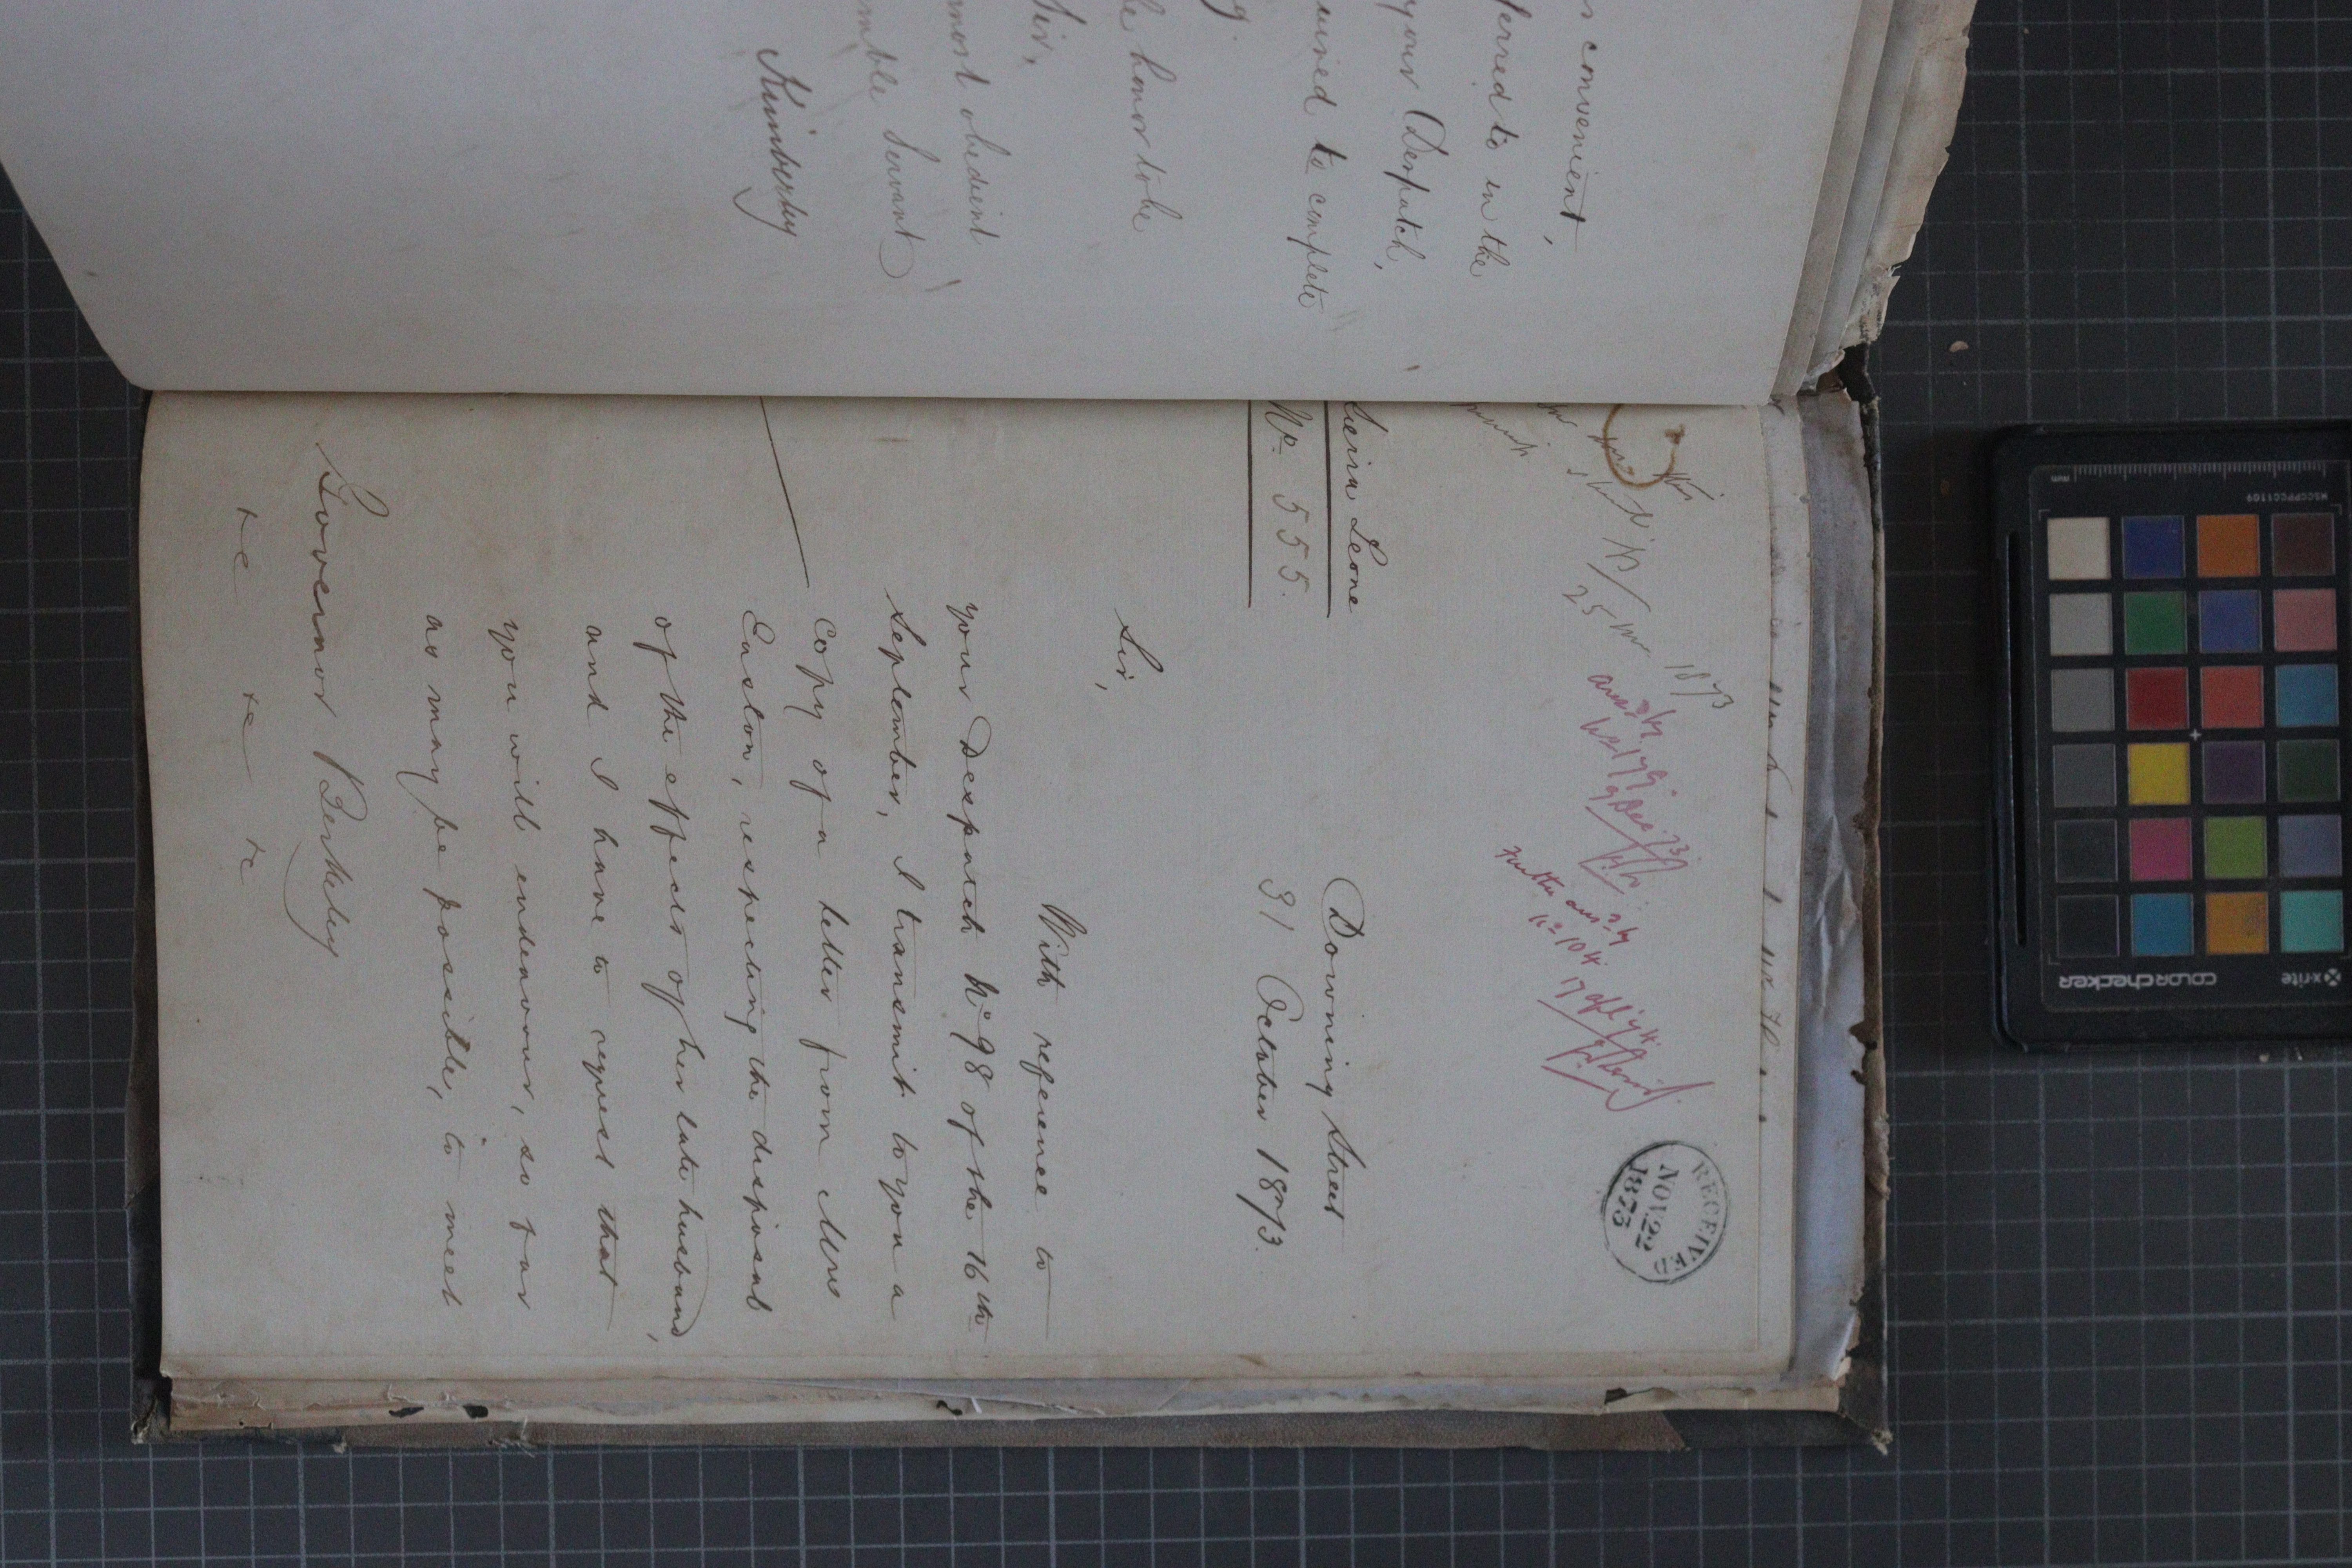 s convenient,
ferred to in the
your Despatch,
uired to complete
g.
e honor to be
Sir,
most obedient
mble Servant
Kimberley
1873
25
ansd by
No 179.
9 Dec. 73
Further ansd by
No 104.
RECEIVED
NOV 22
1873
Sierra Leone
No. 555.
Downing Street
31 October 1873.
Sir,
With reference to
your Despatch No 98 of the 16th
September, I transmit to you a
copy of a letter from Mrs
Easton, respecting the disposal
of the effects of her late husband,
and I have to request that
you will endeavour, so far
as may be possible, to meet
Governor Berkeley
&c &c &c
MSCCPPCC1109
mm
x-rite
COLORCHECKER